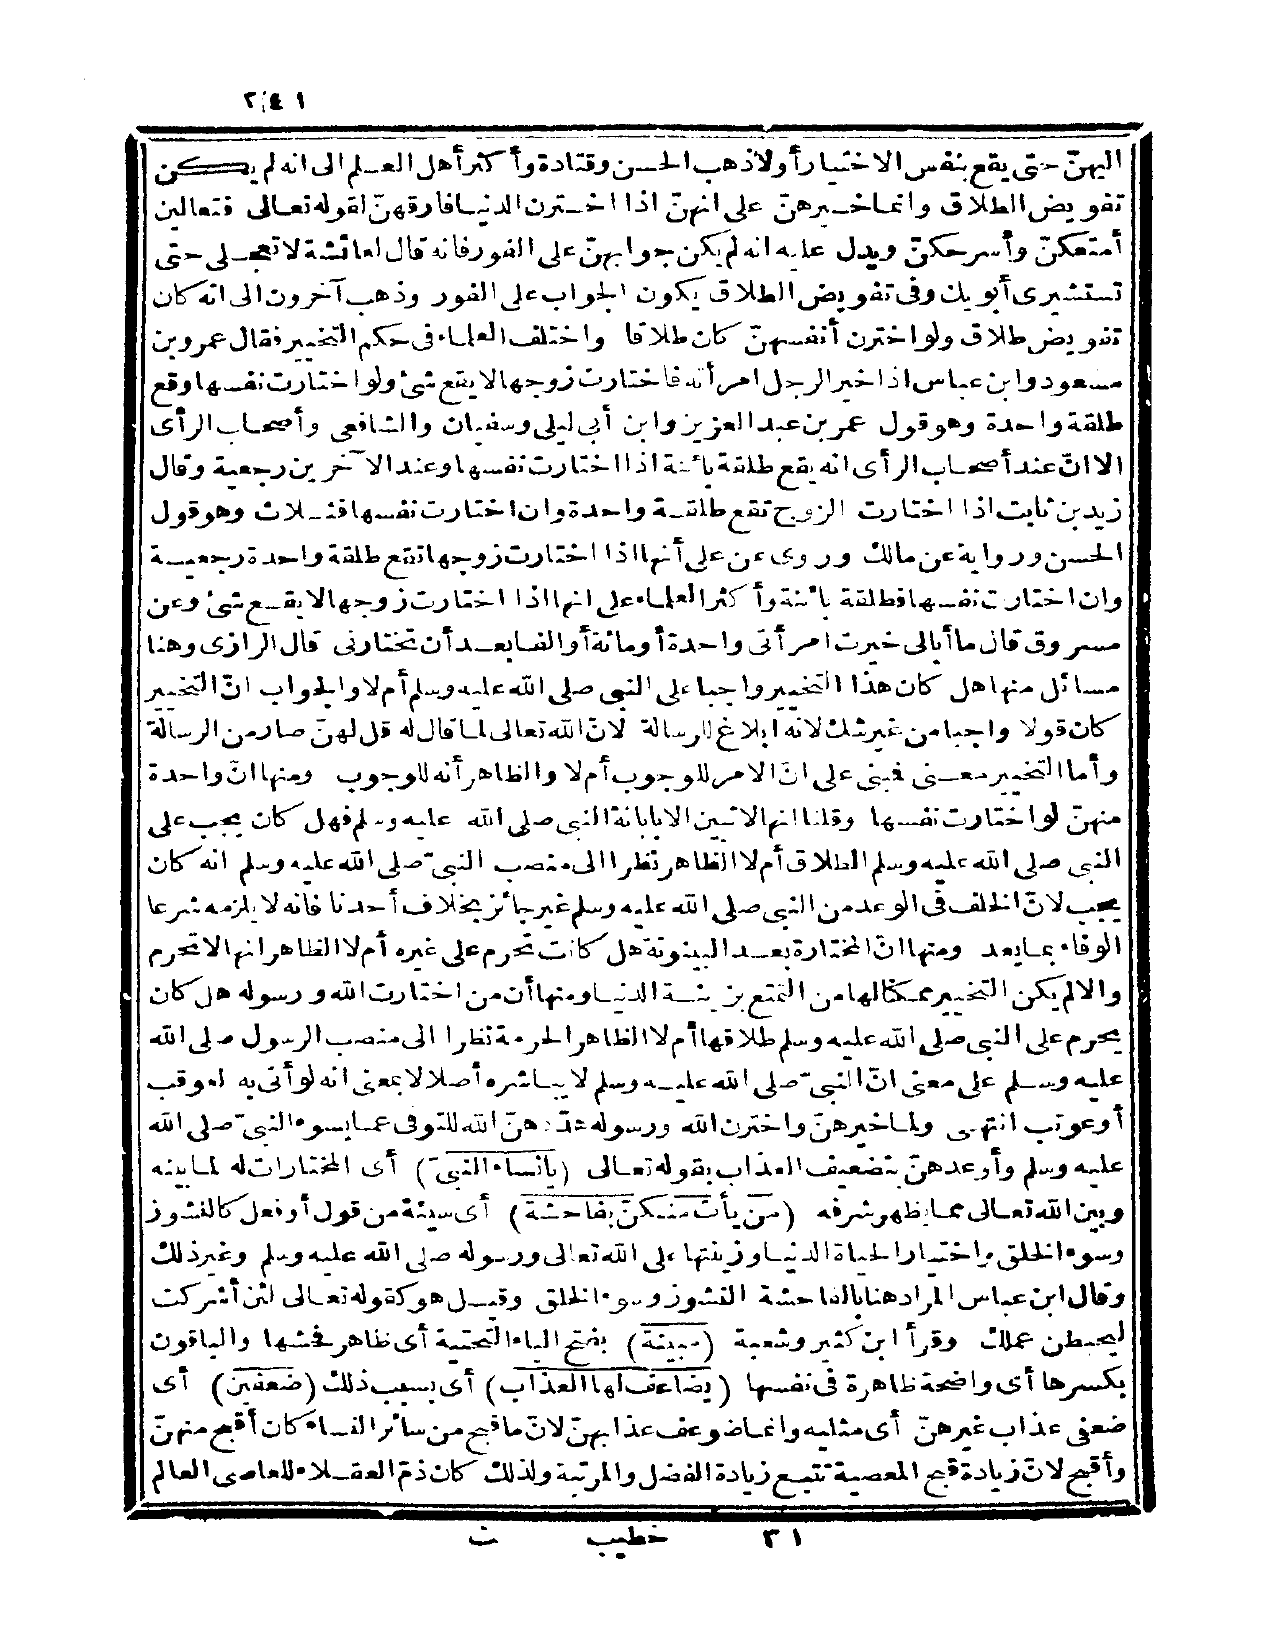 ٢٤١
اليهنّ حتى يقع بنفس الاختيار أولا ذهب الحسن وقتادة وأكثر أهل العلم الى انه لم يكن
تفويض الطلاق وانما خيرهنّ على انهنّ اذا اخترن الدنيا فارقهنّ لقوله تعالى فتعالين
أمتعكنّ وأسرحكنّ ويدل عليه انه لم يكن جوابهنّ على الفور فانه قال لعائشة لا تعجلى حتى
تستشيرى أبويك وفى تفويض الطلاق يكون الجواب على الفور وذهب آخرون الى انه كان
تفويض طلاق ولو اخترن أنفسهنّ كان طلاقا واختلف العلماء فى حكم التخيير فقال عمر وبن
مسعود وابن عباس اذا خير الرجل امرأته فاختارت زوجها لا يقع شئ ولو اختارت نفسها وقع
طلقة واحدة وهو قول عمر بن عبد العزيز وابن أبى ليلى وسفيان والشافعى وأصحاب الرأى
الا انّ عند أصحاب الرأى انه يقع طلقة بائنة اذا اختارت نفسها وعند الآخرين رجعية وقال
زيد بن ثابت اذا اختارت الزوج تقع طلقة واحدة وان اختارت نفسها فثلاث وهو قول
الحسن ورواية عن مالك وروى عن على أنها اذا اختارت زوجها تقع طلقة واحدة رجعية
وان اختارت نفسها فطلقة بائنة وأكثر العلماء على انها اذا اختارت زوجها لا يقع شئ وعن
مسروق قال ما أبالى خيرت امرأتى واحدة أو مائة أو ألفا بعد أن تختارنى قال الرازى وهنا
مسائل منها هل كان هذا التخيير واجبا على النبى صلى الله عليه وسلم أم لا والجواب انّ التخيير
كان قولا واجبا من غير شك لانه ابلاغ للرسالة لانّ الله تعالى لما قال له قل لهنّ صار من الرسالة
وأما التخيير معنى فبنى على انّ الامر للوجوب أم لا والظاهر أنه للوجوب ومنها انّ واحدة
منهنّ لو اختارت نفسها وقلنا انها لا تبين الا بابانة النبى صلى الله عليه وسلم فهل كان يجب على
النبى صلى الله عليه وسلم الطلاق أم لا الظاهر نظرا الى منصب النبىّ صلى الله عليه وسلم انه كان
يجب لانّ الخلف فى الوعد من النبى صلى الله عليه وسلم غير جائز بخلاف أحدنا فانه لا يلزمه شرعا
الوفاء بما يعد ومنها انّ المختارة بعد البينونة هل كانت تحرم على غيره أم لا الظاهر انها لا تحرم
والا لم يكن التخيير ممكنا لها من التمتع بزينة الدنيا ومنها أن من اختارت الله ورسوله هل كان
يحرم على النبى صلى الله عليه وسلم طلاقها أم لا الظاهر الحرمة نظرا الى منصب الرسول صلى الله
عليه وسلم على معنى انّ النبىّ صلى الله عليه وسلم لا يباشره أصلا لا بمعنى انه لو أتى به لعوقب
أو عوتب انتهى ولما خيرهنّ واخترن الله ورسوله هدّدهنّ الله للتوقى عما يسوء النبىّ صلى الله
عليه وسلم وأوعدهنّ بتضعيف العذاب بقوله تعالى (يا نساء النبىّ) أى المختارات له لما بينه
وبين الله تعالى مما يظهر شرفه (من يأت منكنّ بفاحشة) أى سيئة من قول أو فعل كالنشوز
وسوء الخلق واختيار الحياة الدنيا وزينتها على الله تعالى ورسوله صلى الله عليه وسلم وغير ذلك
وقال ابن عباس المراد هنا بالفاحشة النشوز وسوء الخلق وقيل هو كقوله تعالى لئن أشركت
ليحبطن عملك وقرأ ابن كثير وشعبة (مبينة) بفتح الياء التحتية أى ظاهر فحشها والباقون
بكسرها أى واضحة ظاهرة فى نفسها (يضاعف لها العذاب) أى بسبب ذلك (ضعفين) أى
ضعفى عذاب غيرهنّ أى مثليه وانما ضوعف عذابهنّ لانّ ما قبح من سائر النساء كان أقبح منهنّ
وأقبح لانّ زيادة قبح المعصية تتبع زيادة الفضل والمرتبة ولذلك كان ذم العقلاء للعاصى العالم
٣١ خطيب ث